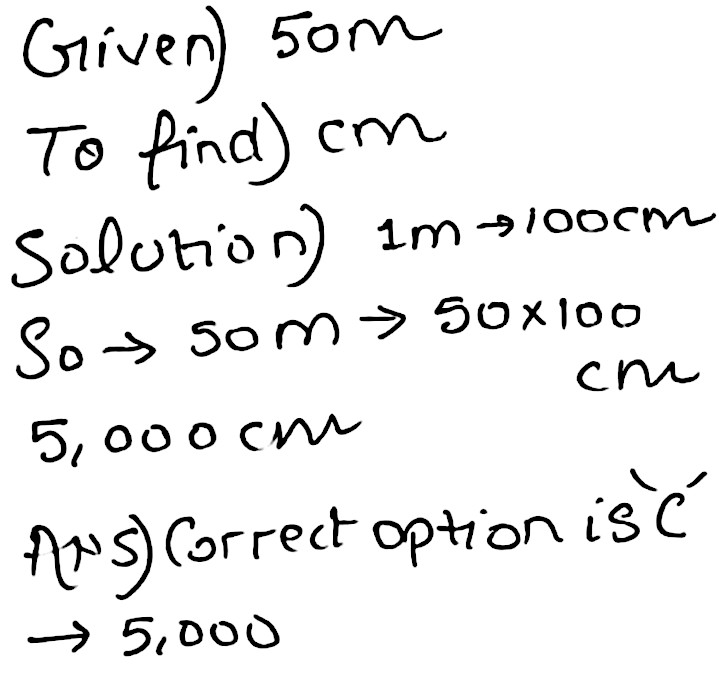 Given) 50m
To find) cm
Solution) 1m → 100cm
So → 50m → 50x100
cm
5,000 cm
Ans) Correct option is 'C'
→ 5,000